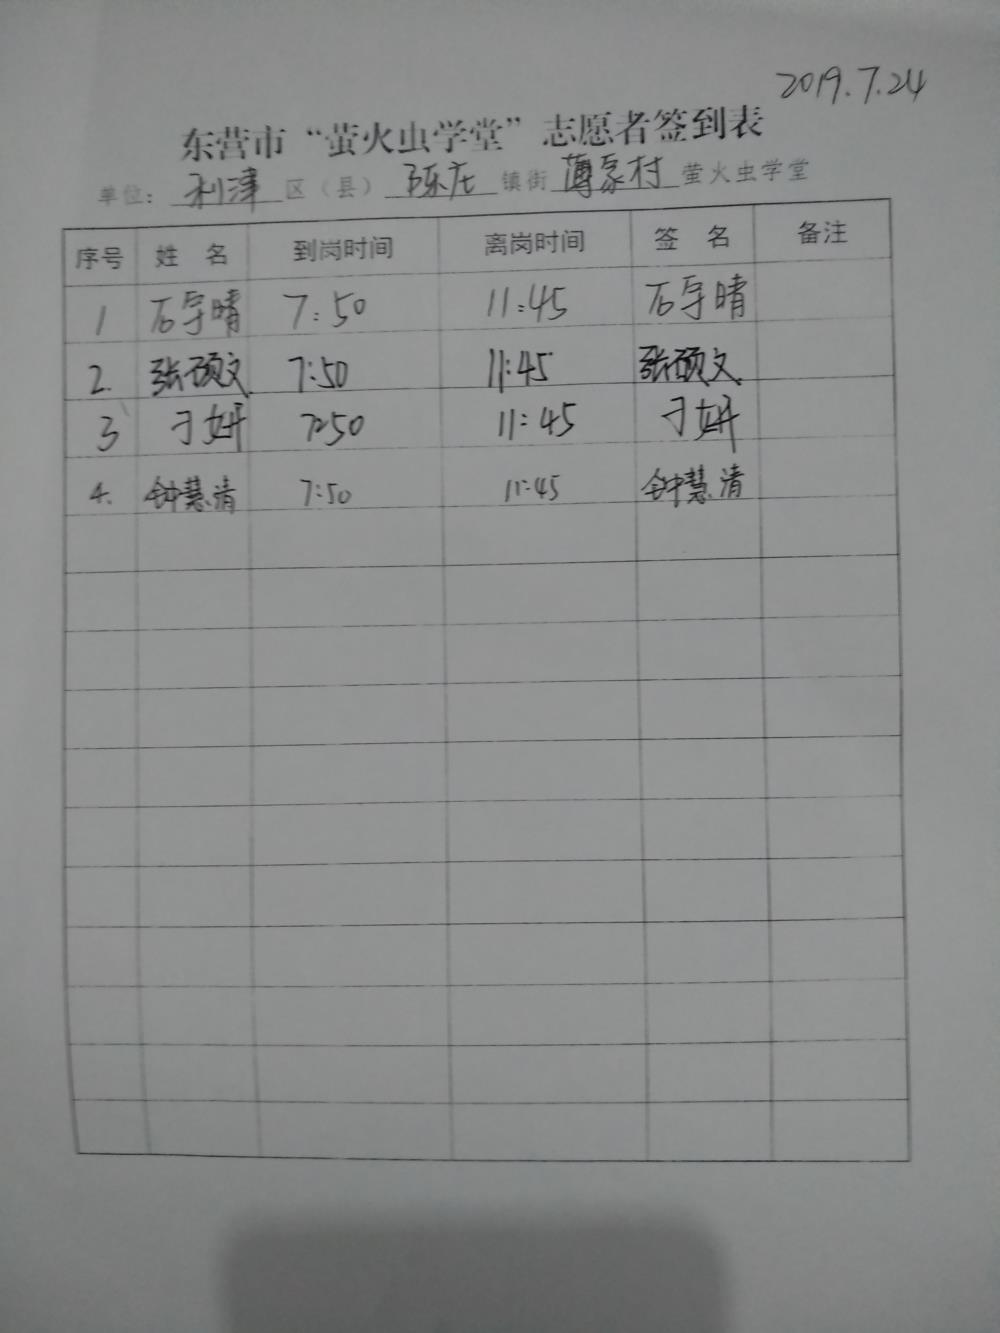 2019.7.24
东营市“萤火虫学堂”志愿者签到表
单位：利津区（县）陈庄镇街薄家村萤火虫学堂
序号 姓 名 到岗时间 离岗时间 签 名 备注
1 石宇晴 7:50 11:45 石宇晴
2. 张硕文 7:50 11:45 张硕文
3 于妍 7:50 11:45 于妍
4. 钟慧清 7:50 11:45 钟慧清